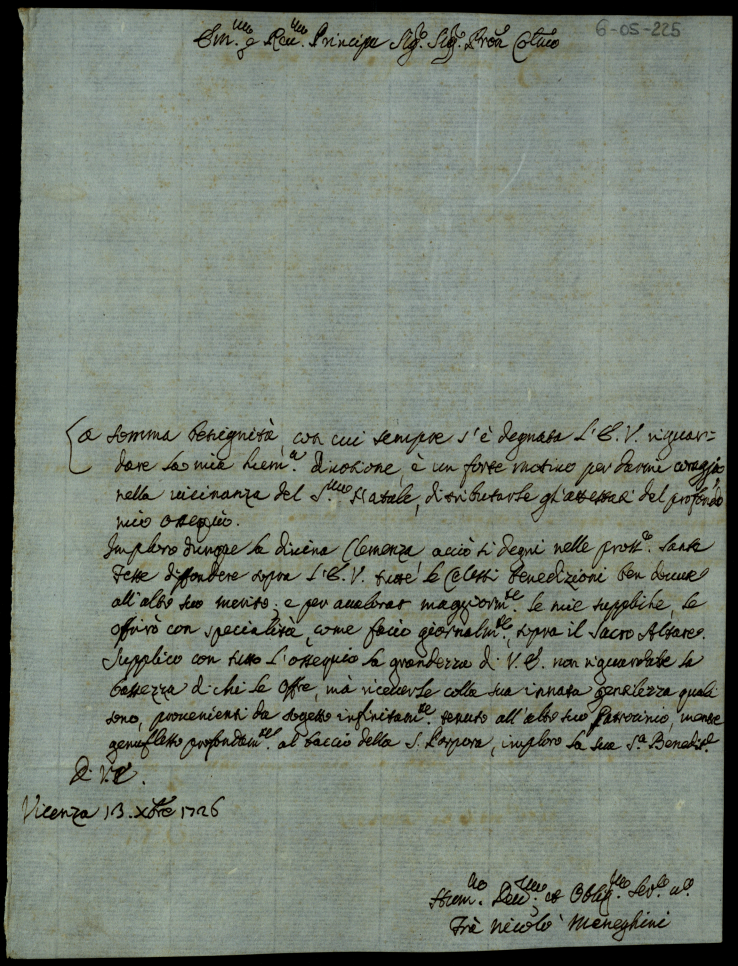 6-05-225
Em.mo e Reu.mo Principe Sig.r Sig.r Pron Col.mo
La somma benignità, con cui sempre s'è degnata L'E.V. riguar=
dare la mia hum.a diuotione, è un forte motiuo per darmi coraggio,
nella uicinanza del S.mo Natale, di tributarle gl'attestati del profondo
mio ossequio.
Imploro dunque la diuina Clemenza acciò si degni nelle pross.e Sante
Feste diffondere sopra L'E.V. tutte le Celesti Benedizioni ben douute
all'alto suo merito; e per aualorar maggiorm.te le mie suppliche, le
offrirò con specialità, come faccio giornalm.te, sopra il Sacro Altare.
Supplico con tutto L'ossequio la grandezza di V.E. non riguardare la
bassezza di chi le offre, mà riceuerle colla sua innata gentilezza quali
sono, prouenienti da sogetto infinitam.te tenuto all'alto suo Patrocinio, mentre
genuflesso profondam.te al baccio della S. Porpora, imploro la sua S.a Benedit.e
Di V.E.
Vicenza 13. Xbre 1726
Hum.mo Deu.mo et Oblig.mo Seru.e u.o
Frà Nicolò Meneghini